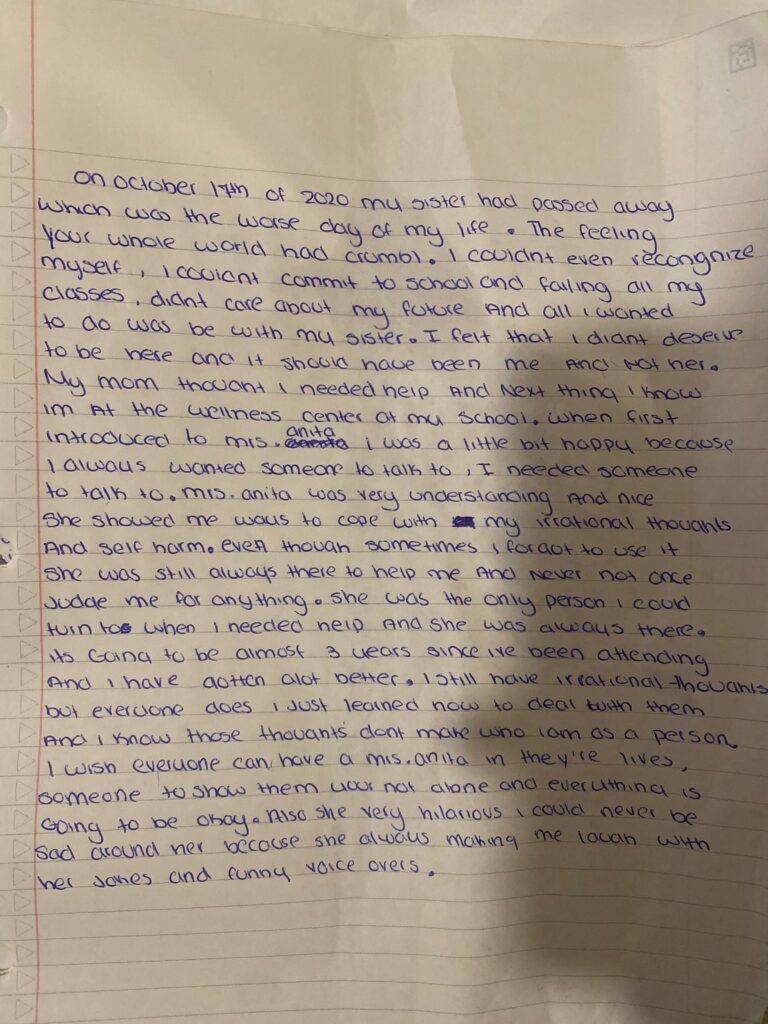 On october 17th of 2020 my sister had passed away
which was the worse day of my life. The feeling
your whole world had crumbl. I couldnt even recongnize
myself, I couldnt commit to school and failing all my
classes, didnt care about my future And all i wanted
to do was be with my sister. I felt that I didnt deserve
to be here and it should have been me And Not her.
My mom thought I needed help And Next thing I know
im At the wellness center at my school. when first
introduced to mrs. anita i was a little bit happy because
I always wanted someone to talk to, I needed someone
to talk to. mrs. anita was very understanding And nice
She showed me ways to cope with my irrational thoughts
And self harm. even though sometimes i forgot to use it
She was still always there to help me And Never not once
Judge me for anything. She was the only person i could
turn to when I needed help And she was always there.
its Going to be almost 3 years since ive been attending
And i have gotten alot better. I still have irrational thoughts
but everyone does i Just learned how to deal with them
And i know those thoughts dont make who iam as a person.
I wish everyone can have a mrs. anita in they're lives,
Someone to show them your not alone and everything is
Going to be okay. Also she very hilarious i could never be
Sad around her because she always making me laugh with
her Jokes and funny voice overs.